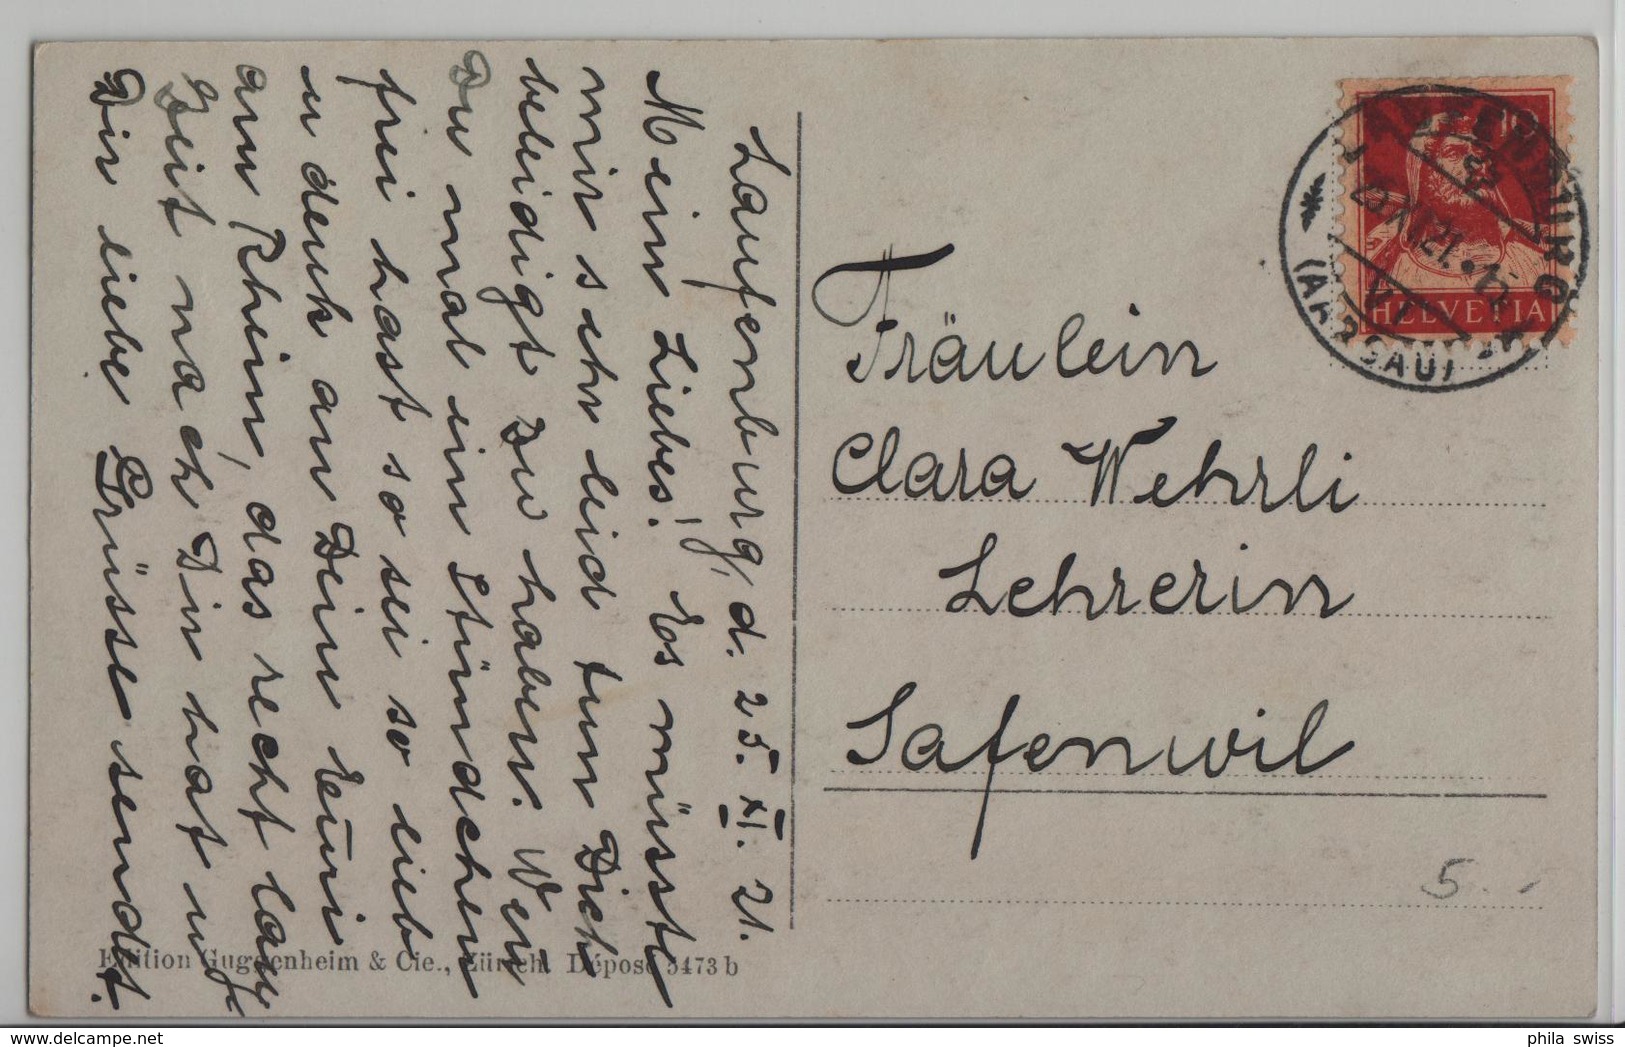 Laufenburg, d. 25. XI. 21.
Mein Liebes! Es müsste
mir sehr leid tun Dich
beleidigt zu haben. Wen
Du mal ein Stündchen
frei hast so sei so lieb
u denk an Dein
am Rhein, das recht lang
Zeit nach Dir hat u
Dir liebe Grüsse sendt.
Fräulein
Clara Wehrli
Lehrerin
Safenwil
5.-
10
HELVETIA
LAUFENBURG
(AARGAU)
VI
Edition Guggenheim & Cie., Zürich. Déposé 5473 b
phila swiss